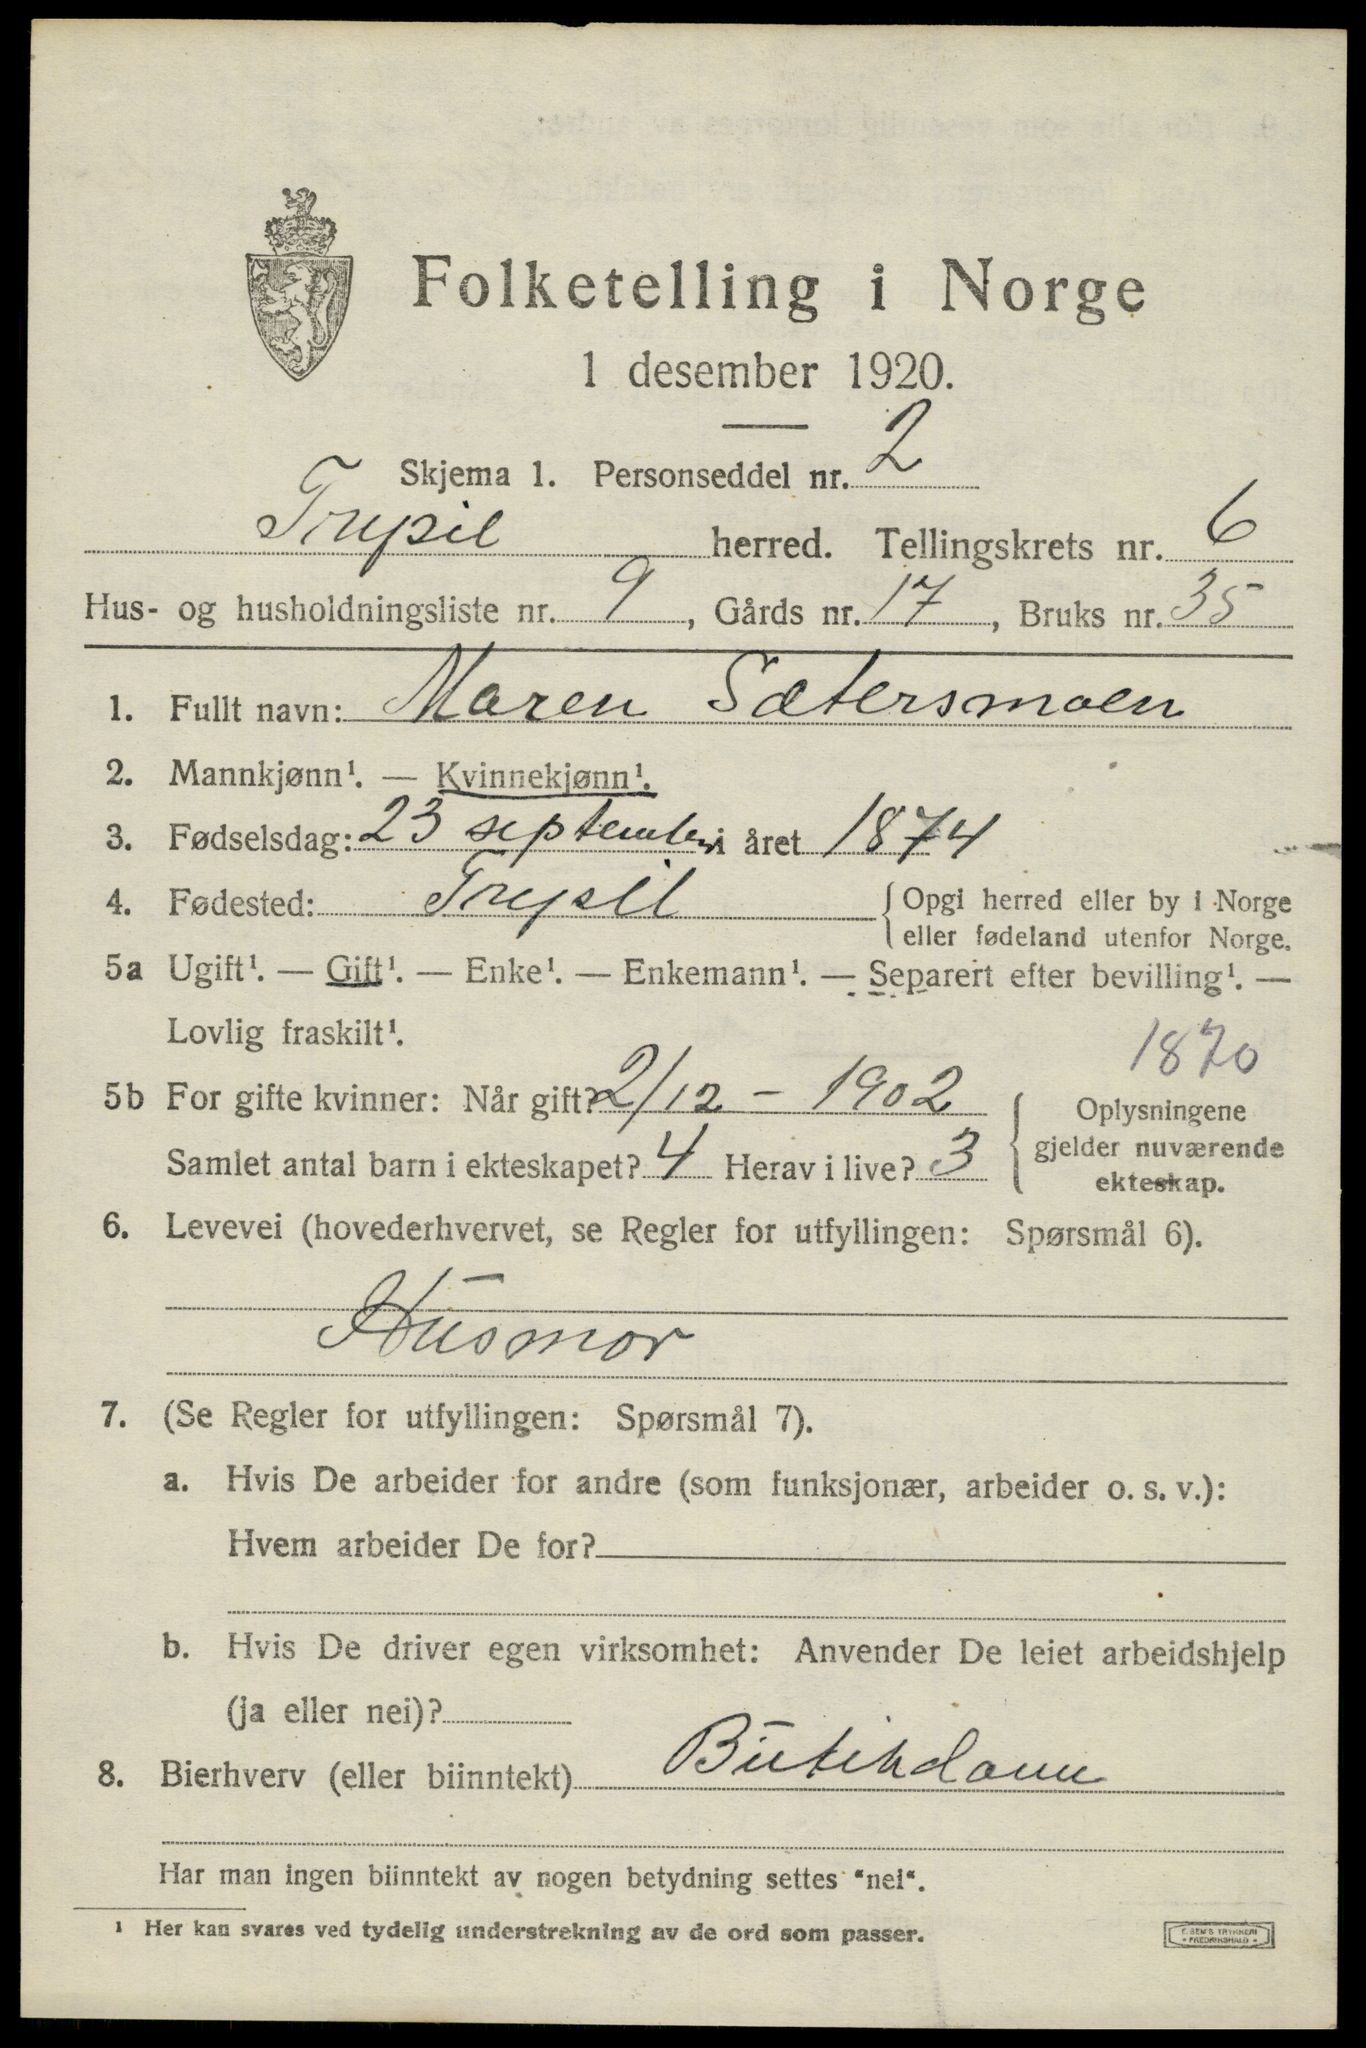 Folketelling i Norge
1 desember 1920.
Skjema 1. Personseddel nr. 2
Trysil herred. Tellingskrets nr. 6
Hus- og husholdningsliste nr. 9, Gårds nr. 17, Bruks nr. 35
1. Fullt navn: Maren Sætersmoen
2. Mannkjønn¹. — Kvinnekjønn¹.
3. Fødselsdag: 23 september i året 1874
4. Fødested: Trysil {Opgi herred eller by i Norge
eller fødeland utenfor Norge.
5a Ugift¹. — Gift¹. — Enke¹. — Enkemann¹. — Separert efter bevilling¹. —
Lovlig fraskilt¹.
1870
5b For gifte kvinner: Når gift? 2/12 - 1902
Samlet antal barn i ekteskapet? 4 Herav i live? 3
{Oplysningene
gjelder nuværende
ekteskap.
6. Levevei (hovederhvervet, se Regler for utfyllingen: Spørsmål 6).
Husmor
7. (Se Regler for utfyllingen: Spørsmål 7).
a. Hvis De arbeider for andre (som funksjonær, arbeider o. s. v.):
Hvem arbeider De for?
b. Hvis De driver egen virksomhet: Anvender De leiet arbeidshjelp
(ja eller nei)?
8. Bierhverv (eller biinntekt) Butikdame
Har man ingen biinntekt av nogen betydning settes "nei".
¹ Her kan svares ved tydelig understrekning av de ord som passer.
TRYKKERI
FREDRIKSHALD